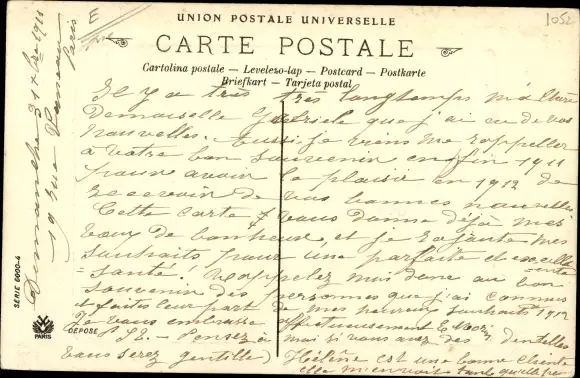 1052
E
UNION POSTALE UNIVERSELLE
CARTE POSTALE
Cartolina postale — Levelezo-lap — Postcard — Postkarte
Briefkart — Tarjeta postal
Dimanche 31 Xbre 1911
19 rue
Paris
Il y a très très longtemps ma chère
Demoiselle Gabriele que j'ai eu de vos
nouvelles. Aussi je viens me rappeler
à votre bon souvenir en fin 1911
pour avoir le plaisir en 1912 de
recevoir de vos bonnes nouvelles
Cette carte vous donne déjà mes
vœux de bonheur, et je rajoute mes
souhaits pour une parfaite et excellente
santé. Rappelez moi donc au bon
souvenir des personnes que j'ai connues
et faites leur part de mes heureux souhaits 1912
Je vous embrasse affectueusement
PS — Pensez à moi si vous avez des dentelles
vous serez gentille) Hélène est une bonne cliente
elle m'envoit tant qu'elle peu
SÉRIE 6000-4
PARIS
DEPOSE